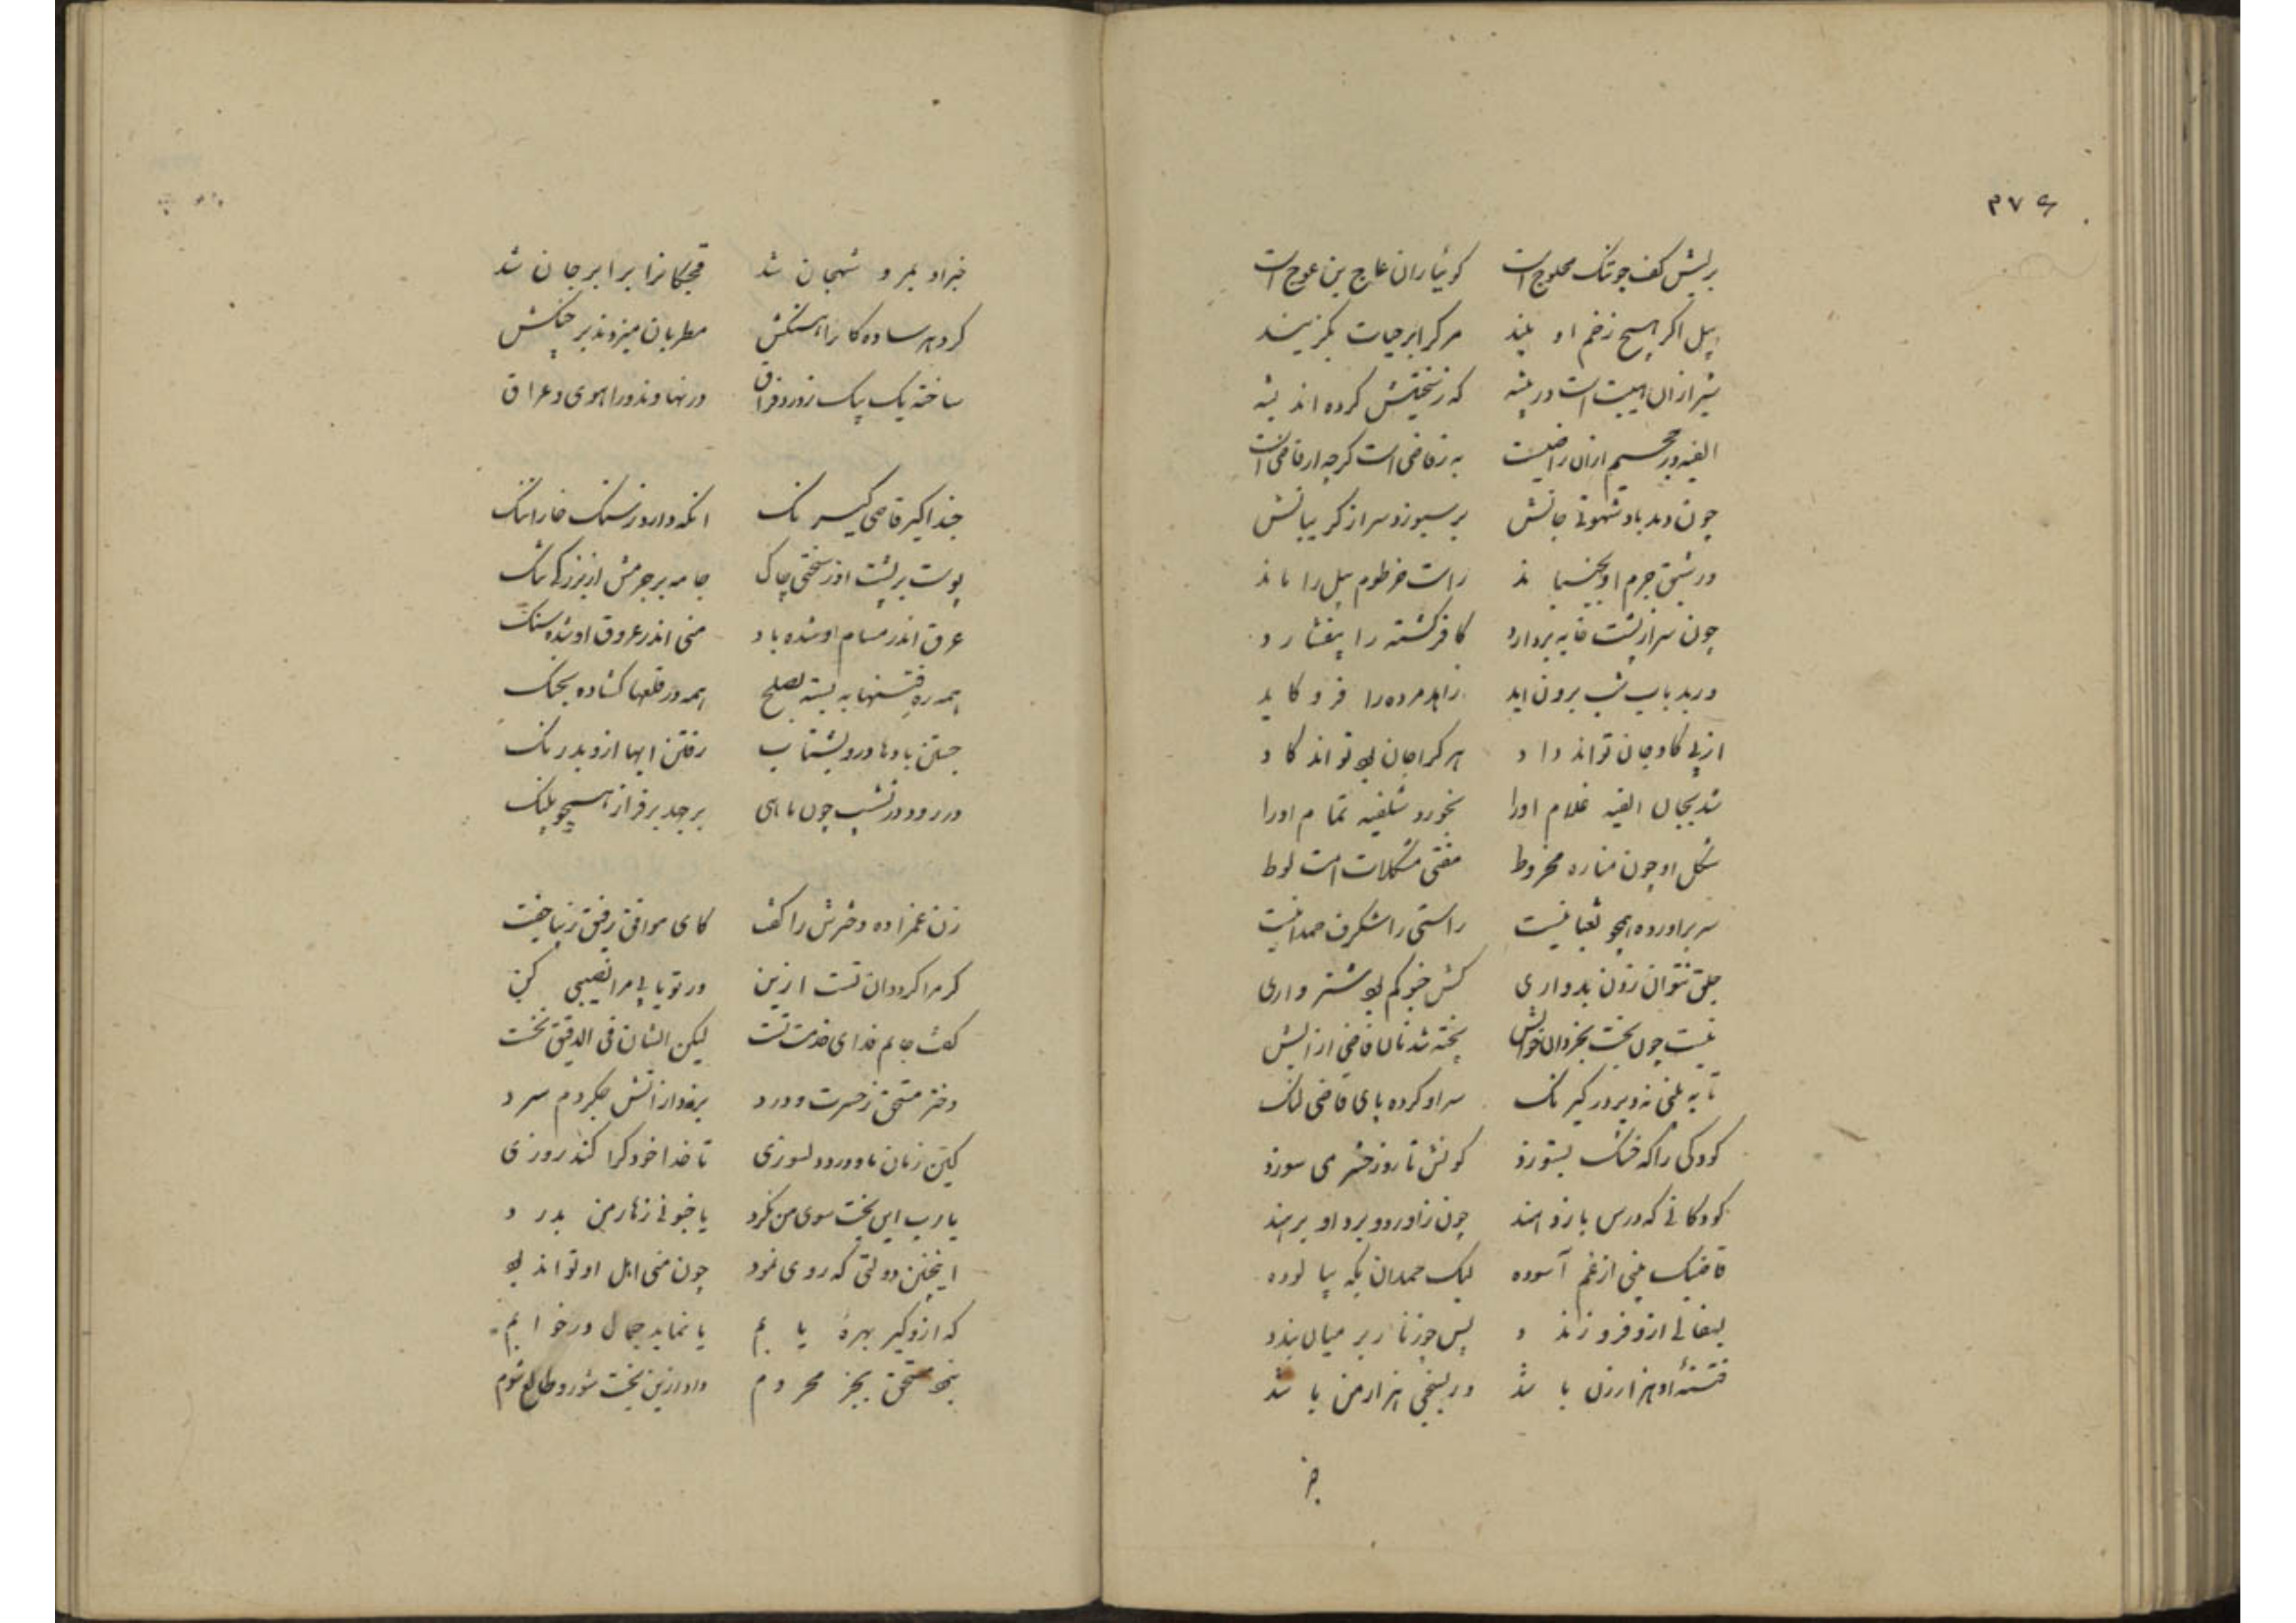 ۳۷۶
بریش کف چو تنک محلوج است کوئیا ران عاج بن عوج است
پیل اکر هیچ زخم او بیند مرک را بر حیات بکزیند
شیر ازان هیبت است در بیشه که ز سختیش کرده اندیشه
الفیه در جحیم ازان راضیست به ز قاضی است کرچه از قاضی است
چون دمد باد شهوتی جانش بر سپوزد سر از کریبانش
در شبق جرم او بجنباند راست خرطوم پیل را ماند
چون سر از پشت خایه بردارد کافر کشته را بیفشارد
ور بدباب شب برون اید زاهد مرده را فرو کاید
از پی کاد جان تواند داد هر کرا جان بود تواند کاد
شد بجان الفیه غلام اورا بخورد شلفیه تمام اورا
شکل او چون مناره مخروط مفتی مشکلات امت لوط
سر براورده همچو ثعبانیست راستی را شکرف حمدانیست
جلق نتوان زدن بدواری کش خیو کم بود شتر واری
نیست چون بخت بخردان خوابش پخته شد نان قاضی از ابش
تا به منی نه دیر در کیر تنک سر او کرده پای قاضی لنک
کودکی را که خشک بستوزد کونش تا روز حشر می سوزد
کودکانی که درس بازدهند چون ز او درد برد او برهند
قاضیک منی از غم آسوده لیک حمدان بکه بیالوده
لیفالی ازو فرو زندد پس چو زنار بر میان بندد
فتنهٔ او هزار زن باشد ور بسنجی هزار من باشد
جز
خبر او بمرو شهجان شد قحبکانرا برابر جان شد
کرد هر ساده کا را هنکش مطربان میزدند بر چنکش
ساخته یک بیک ز ورد فراق در نهاوند و راهوی و عراق
حبذا کیر قاضی کیرنک انکه دارد ز سنک خارا ننک
پوست بر پشت او ز سختی چاک جامه بر جرمش از بزرکی تنک
عرق اندر مسام او شده باد منی اندر عروق او شده سنک
همه ره فتنها به بسته بصلح همه در قلعها کشاده بجنک
جستن بادها درو بشتاب رفتن ابها ازو بدرنک
در رود در نشیب چون ماهی برجهد بر فراز همچو پلنک
زن غمزاده دخترش را کفت کای موافق رفیق زیبا جفت
کر مرا کرد دان تست ازین ور تو یابی مرا نصیبی کن
کفت جانم فدای خدمت تست لیکن الشان فی الدقیق نخست
دختر مستحق ز حسرت و درد برفداز اتش جکر دم سرد
کین زنان با درد و دلسوزی تا خدا خود کرا کند روزی
یا رب این بخت سوی من نکرد یا چنونی زهار من بدرد
اینچنین دولتی که روی نمود چون منی اهل او تواند بود
که ازو کیر بهرهٔ یابم یا نماید جمال در خوابم
نیم مستحق بجز محروم داد ازین بخت شور و طالع شوم